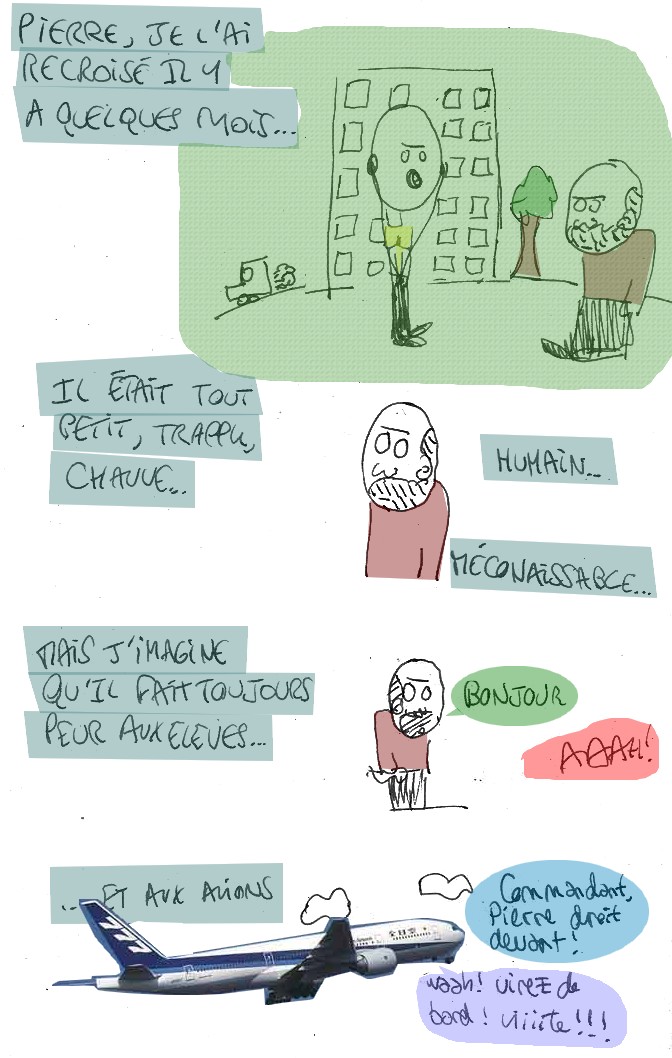 PIERRE, JE L'AI
RECROISÉ IL Y
A QUELQUES MOIS...
IL ÉTAIT TOUT
PETIT, TRAPPU,
CHAUVE...
HUMAIN...
MÉCONAISSABLE...
MAIS J'IMAGINE
QU'IL FAIT TOUJOURS
PEUR AUX ELEVES...
BONJOUR
AAAH!
... ET AUX AVIONS
Commandant,
Pierre droit
devant!
waah! virez de
bord! viiite!!!
全日空